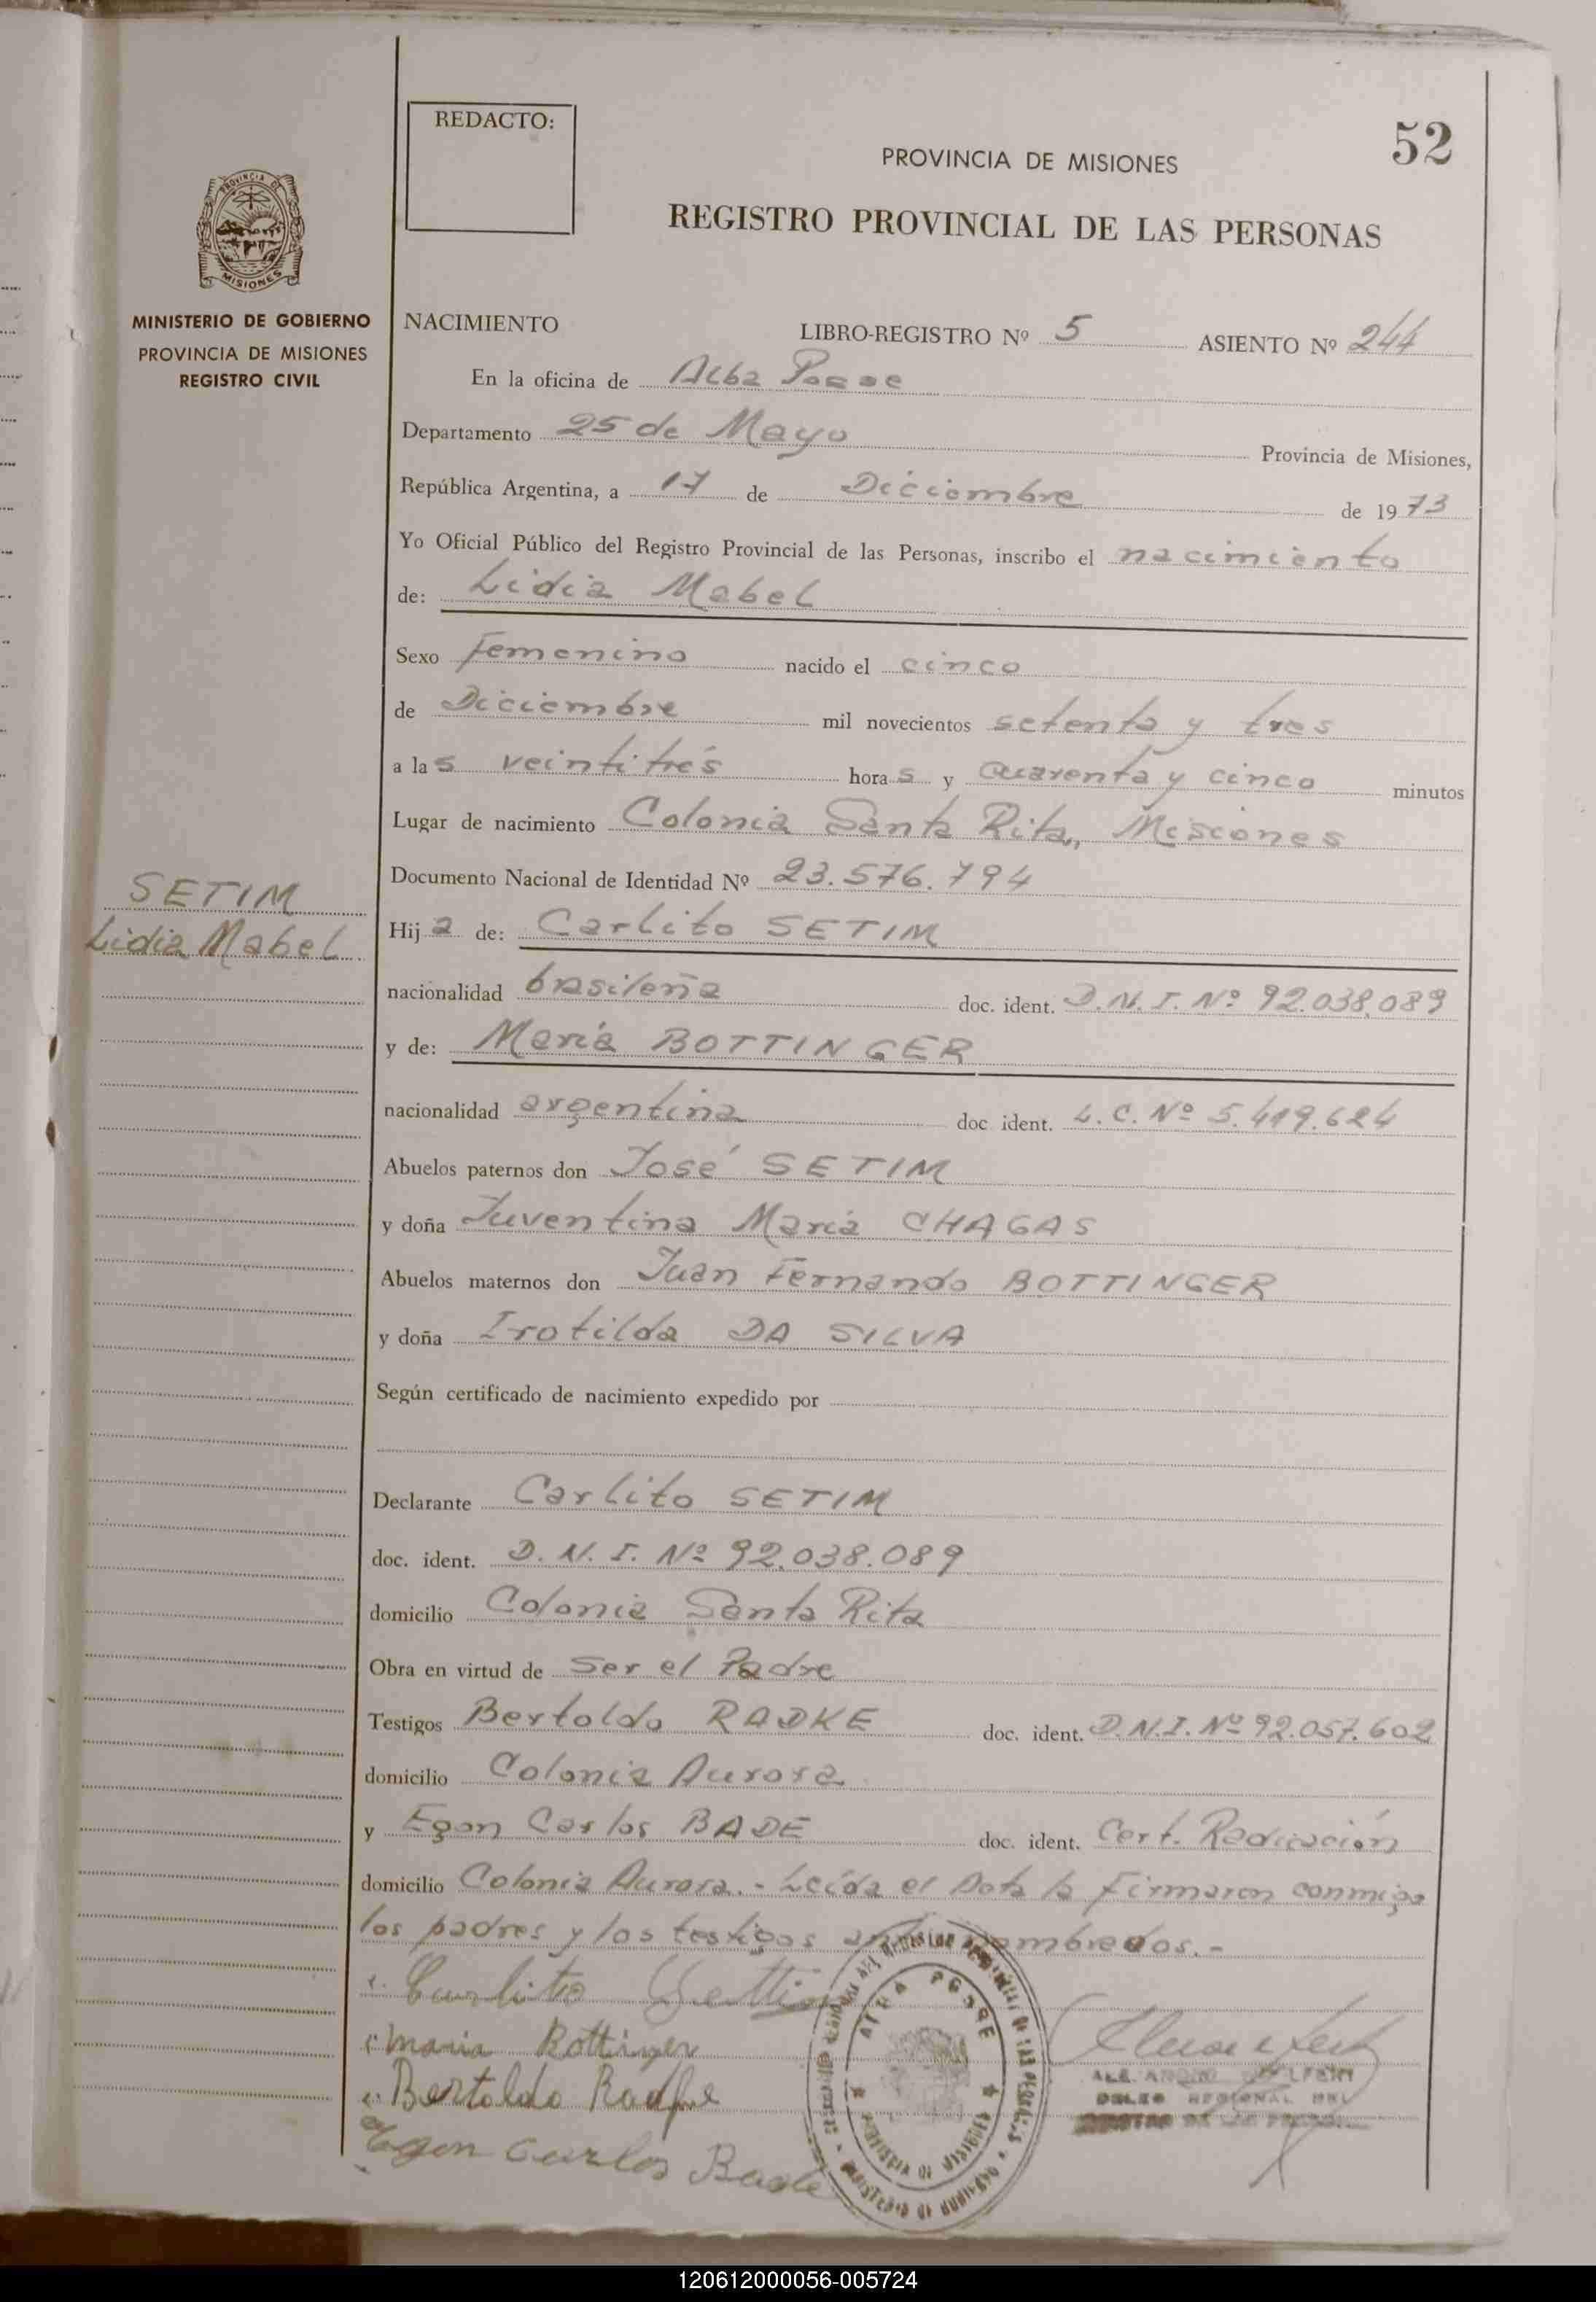 REDACTO:
52
PROVINCIA DE MISIONES
REGISTRO PROVINCIAL DE LAS PERSONAS
PROVINCIA DE
MISIONES
MINISTERIO DE GOBIERNO
PROVINCIA DE MISIONES
REGISTRO CIVIL
NACIMIENTO LIBRO-REGISTRO Nº 5 ASIENTO Nº 244
En la oficina de Alba Posse
Departamento 25 de Mayo Provincia de Misiones,
República Argentina, a 17 de Diciembre de 1973
Yo Oficial Público del Registro Provincial de las Personas, inscribo el nacimiento
de: Lidia Mabel
Sexo Femenino nacido el cinco
de Diciembre mil novecientos setenta y tres
a las veintitrés horas y cuarenta y cinco minutos
Lugar de nacimiento Colonia Santa Rita, Misiones
Documento Nacional de Identidad Nº 23.576.794
SETIM
Lidia Mabel
Hija de: Carlito SETIM
nacionalidad brasileña doc. ident. D.N.I. Nº 92.038.089
y de: María BOTTINGER
nacionalidad argentina doc ident. L.C. Nº 5.419.624
Abuelos paternos don José SETIM
y doña Juventina María CHAGAS
Abuelos maternos don Juan Fernando BOTTINGER
y doña Irotilda DA SILVA
Según certificado de nacimiento expedido por
Declarante Carlito SETIM
doc. ident. D.N.I. Nº 92.038.089
domicilio Colonia Santa Rita
Obra en virtud de ser el Padre
Testigos Bertoldo RADKE doc. ident. D.N.I. Nº 92.057.602
domicilio Colonia Aurora
y Egon Carlos BADE doc. ident. Cert. Radicación
domicilio Colonia Aurora.- Leída el Acta la Firmaron conmigo
los padres y los testigos nombrados.-
Carlito Settim
Maria Bottinger
Bertoldo Radke
Egon Carlos Bade
ALBA POSSE
PROVINCIA DE MISIONES
REGIONAL DEL
120612000056-005724